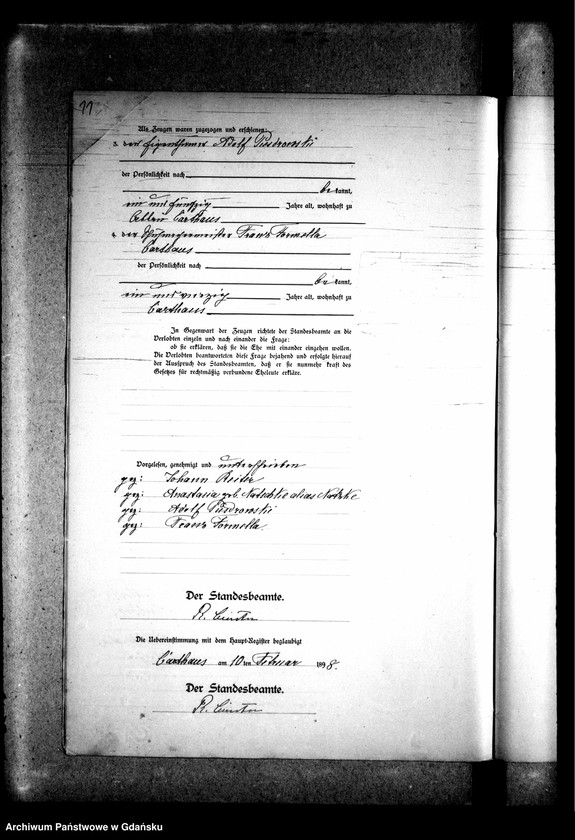 11
Als Zeugen waren zugezogen und erschienen:
3. der Eigenthümer Adolf
der Persönlichkeit nach
be kannt,
ein und fünfzig Jahre alt, wohnhaft zu
Carthaus
4. der Schuhmachermeister Franz Formella
Carthaus
der Persönlichkeit nach
be kannt,
ein und vierzig Jahre alt, wohnhaft zu
Carthaus
In Gegenwart der Zeugen richtete der Standesbeamte an die
Verlobten einzeln und nach einander die Frage:
ob sie erklären, daß sie die Ehe mit einander eingehen wollen.
Die Verlobten beantworteten diese Frage bejahend und erfolgte hierauf
der Ausspruch des Standesbeamten, daß er sie nunmehr kraft des
Gesetzes für rechtmäßig verbundene Eheleute erkläre.
Vorgelesen, genehmigt und unterschrieben
gez: Johann Reiter
gez: Anastasia geb. alias
gez: Adolf
gez: Franz Formella
Der Standesbeamte.
R.
Die Uebereinstimmung mit dem Haupt-Register beglaubigt
Carthaus am 10 ten Februar 1898.
Der Standesbeamte.
R.
Archiwum Państwowe w Gdańsku